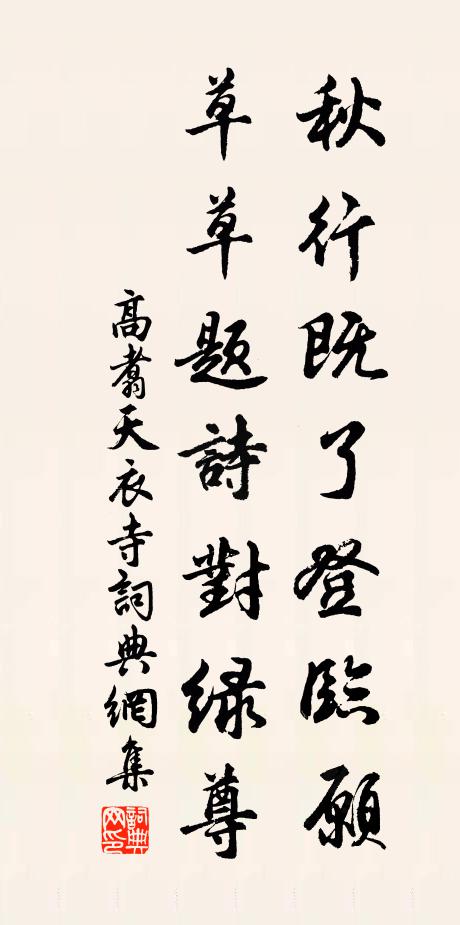 秋行既了登臨願
草草題詩對緑尊
高翥天衣寺詞典網集
詞典網印